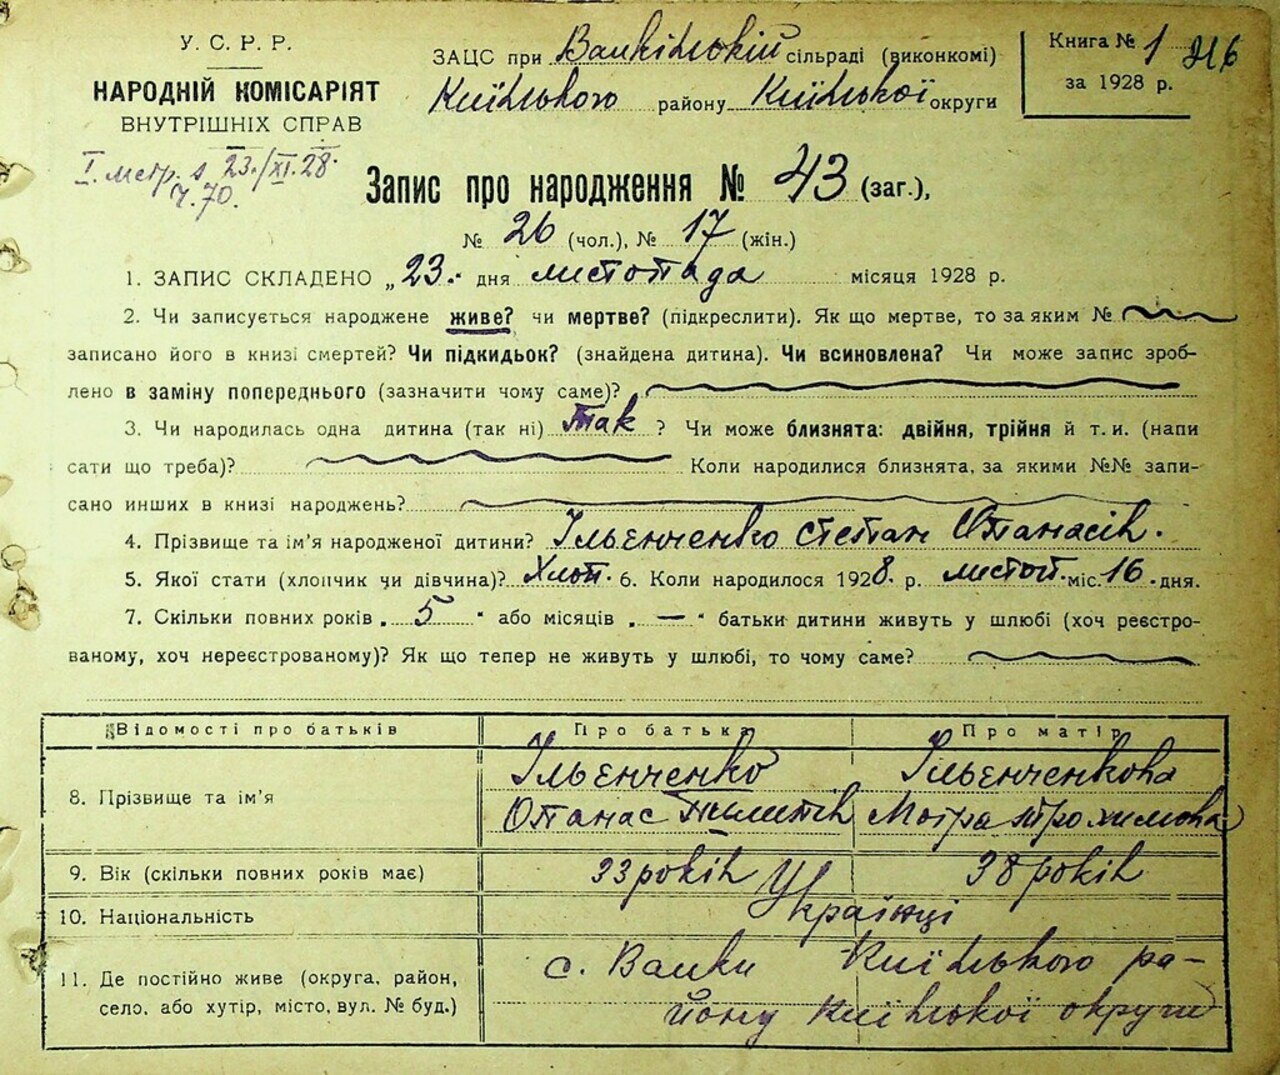 У. С. Р. Р.
НАРОДНІЙ КОМІСАРІЯТ
ВНУТРІШНІХ СПРАВ
І. метр. з 23./XI. 28.
Ч. 70.
ЗАЦС при сільраді (виконкомі)
Київського району Київської округи
Книга № 1 216
за 1928 р.
Запис про народження № 43 (заг.),
№ 26 (чол.), № 17 (жін.)
1. ЗАПИС СКЛАДЕНО „23." дня листопада місяця 1928 р.
2. Чи записується народжене живе? чи мертве? (підкреслити). Як що мертве, то за яким №
записано його в книзі смертей? Чи підкидьок? (знайдена дитина). Чи всиновлена? Чи може запис зроб-
лено в заміну попереднього (зазначити чому саме)?
3. Чи народилась одна дитина (так ні) так ? Чи може близнята: двійня, трійня й т. и. (напи
сати що треба)? Коли народилися близнята, за якими №№ запи-
сано инших в книзі народжень?
4. Прізвище та ім'я народженої дитини? Ільєнченко Степан Опанасів.
5. Якої стати (хлопчик чи дівчина)? Хлоп. 6. Коли народилося 1928. р. листоп. міс. 16. дня.
7. Скільки повних років „ 5 " або місяців „ — " батьки дитини живуть у шлюбі (хоч реєстро-
ваному, хоч нереєстрованому)? Як що тепер не живуть у шлюбі, то чому саме?
Відомості про батьків Про батька Про матір
8. Прізвище та ім'я Ільєнченко Опанас Пилипів Ільєнченкова Мотра Трохимова
9. Вік (скільки повних років має) 33 років 38 років
10. Національність Українці
11. Де постійно живе (округа, район, с. Київського ра-
село, або хутір, місто, вул. № буд.) йону Київської округи